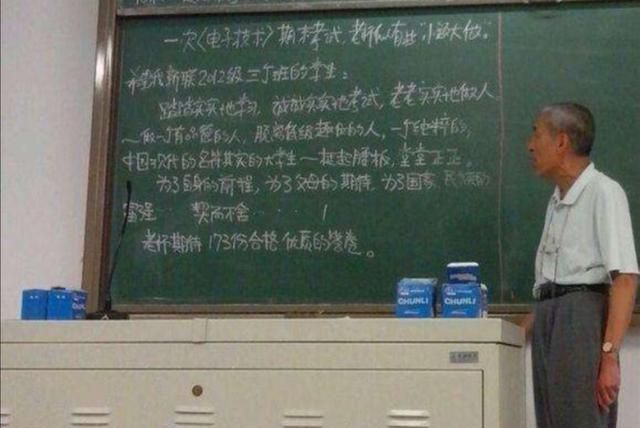 一次《电子技术》期末考试,老师似有些“小题大做”
希望我新联2012级三个班的学生:
踏踏实实地学习,诚诚实实地考试,老老实实地做人
~做一个有品德的人,脱离低级趣味的人,一个纯粹的,
中国现代的名符其实的大学生~挺起腰板,堂堂正正。
为了自身的前程,为了父母的期待,为了国家、民族的
富强 契而不舍……!
老师期待173份合格优质的答卷。
CHUNLI
CHUNLI